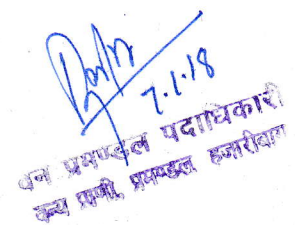 7.1.18
वन प्रमण्डल पदाधिकारी
वन्य प्राणी, प्रमण्डल हजारीबाग